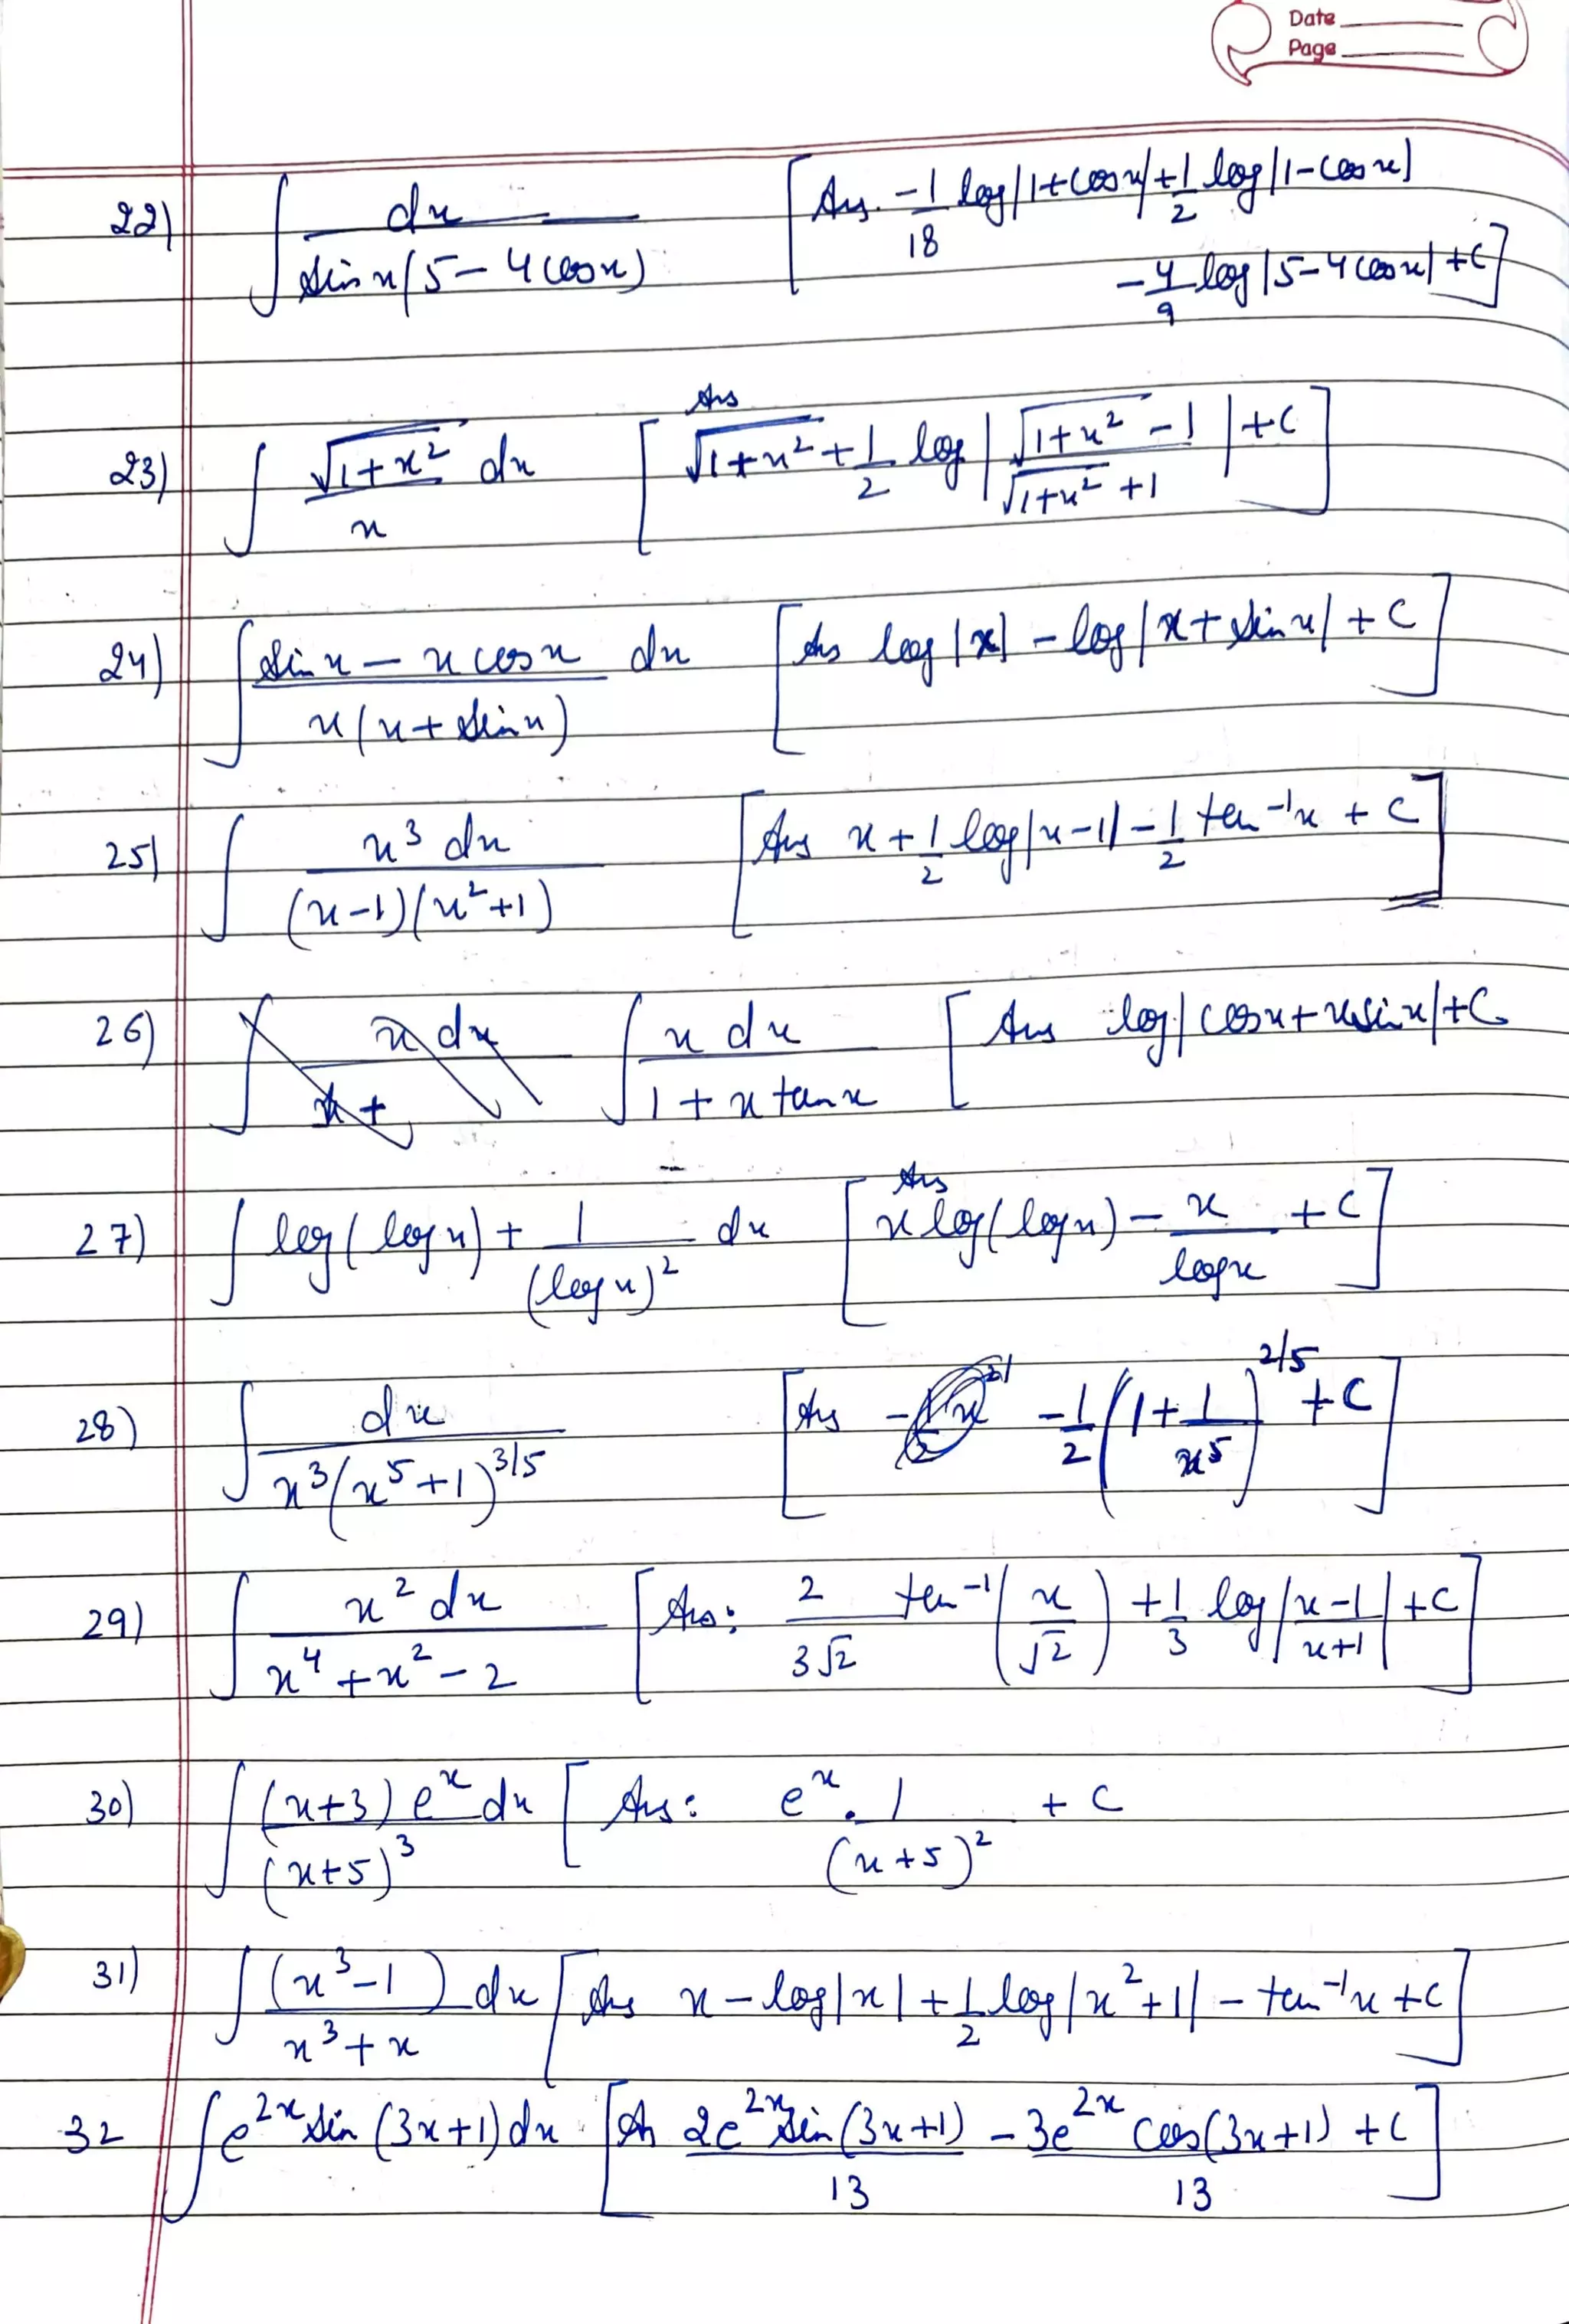 Date
Page
22) ∫ dx / sin x(5 - 4cos x) [Ans. -1/18 log|1+cos x| + 1/2 log|1-cos x|
- 4/9 log|5-4cos x| + C]
23) ∫ √(1+x²) / x dx [Ans √(1+x²) + 1/2 log |(√(1+x²) - 1) / (√(1+x²) + 1)| + C]
24) ∫ (sin x - x cos x) / x(x + sin x) dx [Ans log|x| - log|x + sin x| + C]
25) ∫ x³ dx / (x-1)(x²+1) [Ans x + 1/2 log|x-1| - 1/2 tan⁻¹x + C]
26) ∫ x dx / 1 + x tan x [Ans log|cos x + x sin x| + C
27) ∫ log(log x) + 1/(log x)² dx [Ans x log(log x) - x/log x + C]
28) ∫ dx / x³(x⁵+1)^3/5 [Ans -1/2 (1 + 1/x⁵)^2/5 + C]
29) ∫ x² dx / x⁴ + x² - 2 [Ans: 2/3√2 tan⁻¹(x/√2) + 1/3 log|(x-1)/(x+1)| + C]
30) ∫ (x+3) eˣ / (x+5)³ dx [Ans: eˣ . 1/(x+5)² + C
31) ∫ (x³-1) / x³+x dx [Ans x - log|x| + 1/2 log|x²+1| - tan⁻¹x + C]
32 ∫ e^2x sin(3x+1) dx [A 2e^2x sin(3x+1) / 13 - 3e^2x cos(3x+1) / 13 + C]